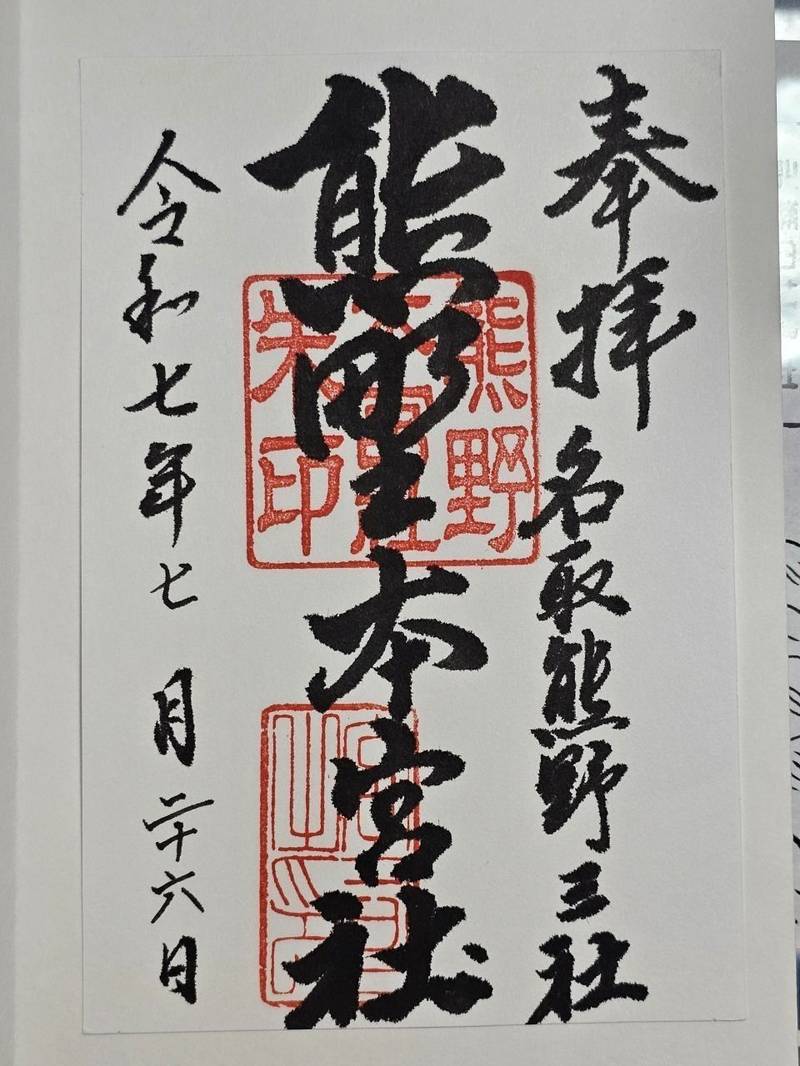 奉拝 名取熊野三社
熊野本宮社
令和七年七月二十六日
熊野
朱印